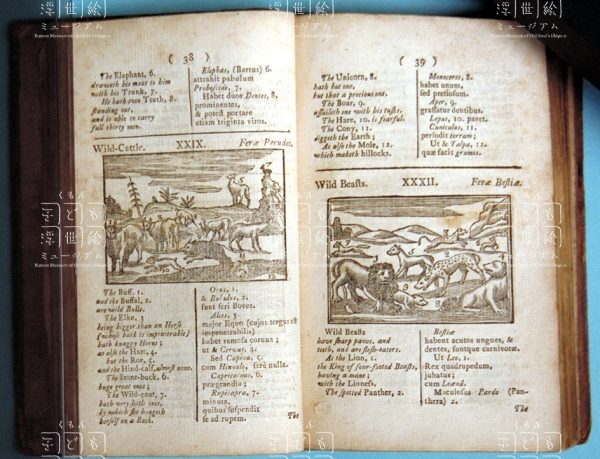 ( 38 )
The Elephant, 6.
draweth his meat to him
with his Trunk, 7.
He hath two Teeth, 8.
standing out,
and is able to carry
full thirty men.
Elephas, (Barrus) 6.
attrahit pabulum
Proboscide, 7.
Habet duos Dentes, 8.
prominentes,
& potest portare
etiam triginta viros.
Wild-Cattle. XXIX. Feræ Pecudes.
The Buff, 1.
and the Buffal, 2.
are wild Bulls.
The Elke, 3.
being bigger than an Horse
(whose back is impenetrable)
hath knaggy Horns;
as also the Hart, 4.
but the Roe, 5.
and the Hind-calf, almost none.
The Stone-buck, 6.
huge great ones;
The Wild-goat, 7.
hath very little ones,
by which she hangeth
herself on a Rock.
Urus, 1.
& Bubalus, 2.
sunt feri Boves.
Alces, 3.
major Equo (cujus tergus est
impenetrabilis)
habet ramosa cornua;
ut & Cervus, 4.
Sed Caprea, 5.
cum Hinnulo, ferè nulla.
Capricornus, 6.
prægrandia;
Rupicapra, 7.
minuta,
quibus suspendit
se ad rupem.
The
( 39 )
The Unicorn, 8.
hath but one,
but that a precious one.
The Boar, 9.
assaileth one with his tusks.
The Hare, 10. is fearful.
The Cony, 11.
diggeth the Earth;
As also the Mole, 12.
which maketh hillocks.
Monoceros, 8.
habet unum,
sed pretiosum.
Aper, 9.
grassatur dentibus.
Lepus, 10. pavet.
Cuniculus, 11.
perfodit terram;
Ut & Talpa, 12.
quæ facit grumos.
Wild Beasts. XXXII. Feræ Bestiæ.
Wild Beasts
have sharp paws, and
teeth, and are flesh-eaters.
As the Lion, 1.
the King of four-footed Beasts,
having a mane;
with the Lioness.
The spotted Panther, 2.
Bestiæ
habent acutos ungues, &
dentes, suntque carnivoræ.
Ut Leo, 1.
Rex quadrupedum,
jubatus;
cum Leænâ.
Maculosus Pardo (Pan-
thera) 2.
The